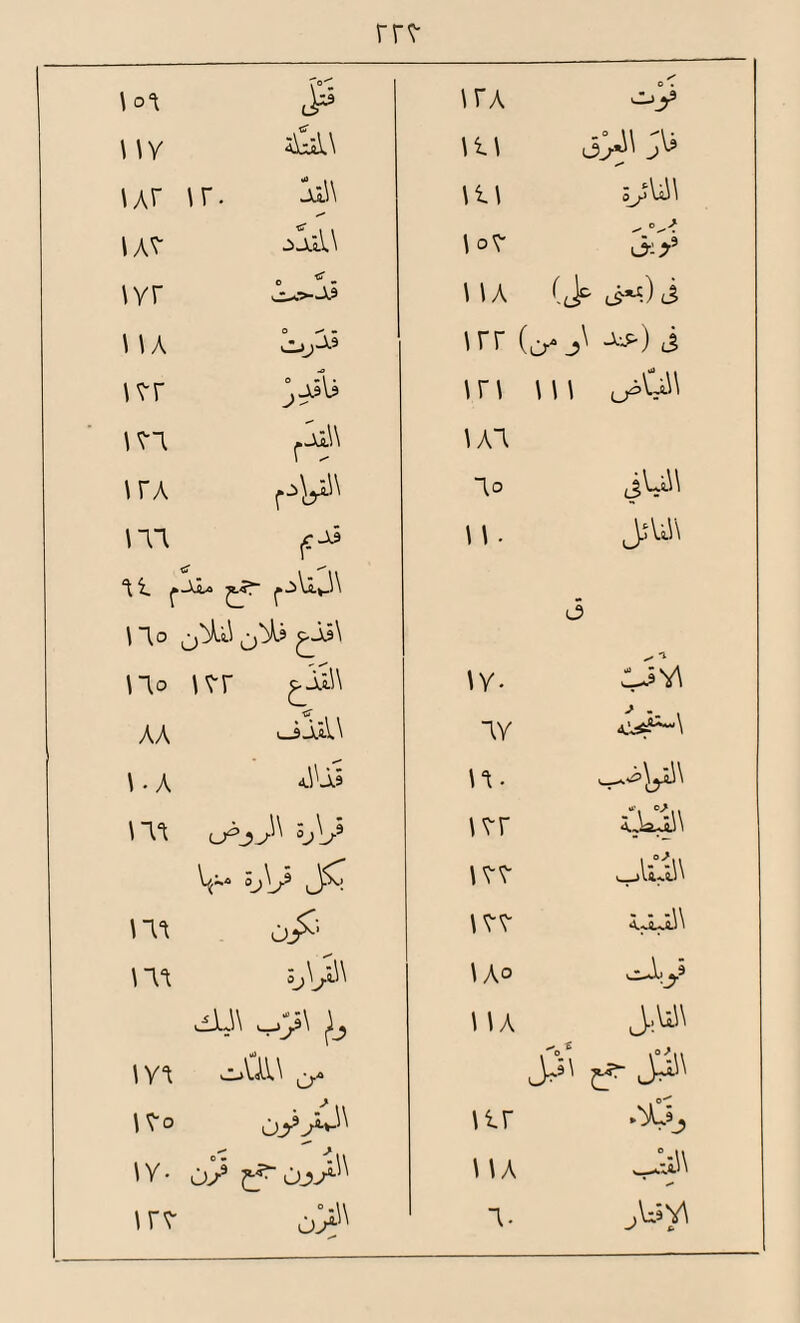 ٢٢٣
فَوْت ١٢٨
فار العِرْق ١٤١
الفائرة ١٤١
فُوَيْق ١٥٣
في (بمعنى على) ١١٨
في (عند او من) ١٢٢
الفيّاض ١١١ ١٢١
١٨٦
الفيافي ٦٥
الفائل ١١٠
ق
الأَقبّ ١٧٠
٦٧
القواضب ١٩٠
القُبْطيّة ١٣٢
القُبْقاب ١٣٣
القبقبة ١٣٣
قوبلت ١٨٥
القابل ١١٨
القُبْل جمع أَقْبَل
وقَبْلاء ١٤٢
القتب ١١٨
الاقتار ٦٠
قَتْلَى ١٥٩
المقتّلة ١١٧
القدّ ١٢٠ ١٨٢
المقدّد ١٨٣
قدّحتْ ١٧٢
قدَرتْ ١١٨
فاقدِرْ ١٣٢
القِدَم ١٣٦
القوادم ١٢٨
قدم ١٦٦
المقادم جمع مقدّم ٩٤
اقدع فلان لفلان ١٦٥
القَدَع ١٣٢ ١٦٥
المقذّف ٨٨
قذاله ١٠٨
قرارة الروض ١٦٩
بكل قرارة منها
تكون ١٦٩
القَرارة ١٦٩
ولم اقرب اليك
من اللمّات ١٧٩
المُقرفون ١٣٥
القُرون جمع قَرْن ١٧٠
القِرن ١٢٣